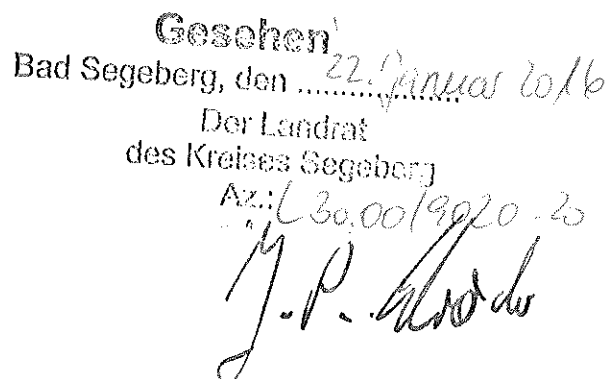 Gesehen
Bad Segeberg, den 22. Januar 2016
Der Landrat
des Kreises Segeberg
Az.: L 30.00/9020-20